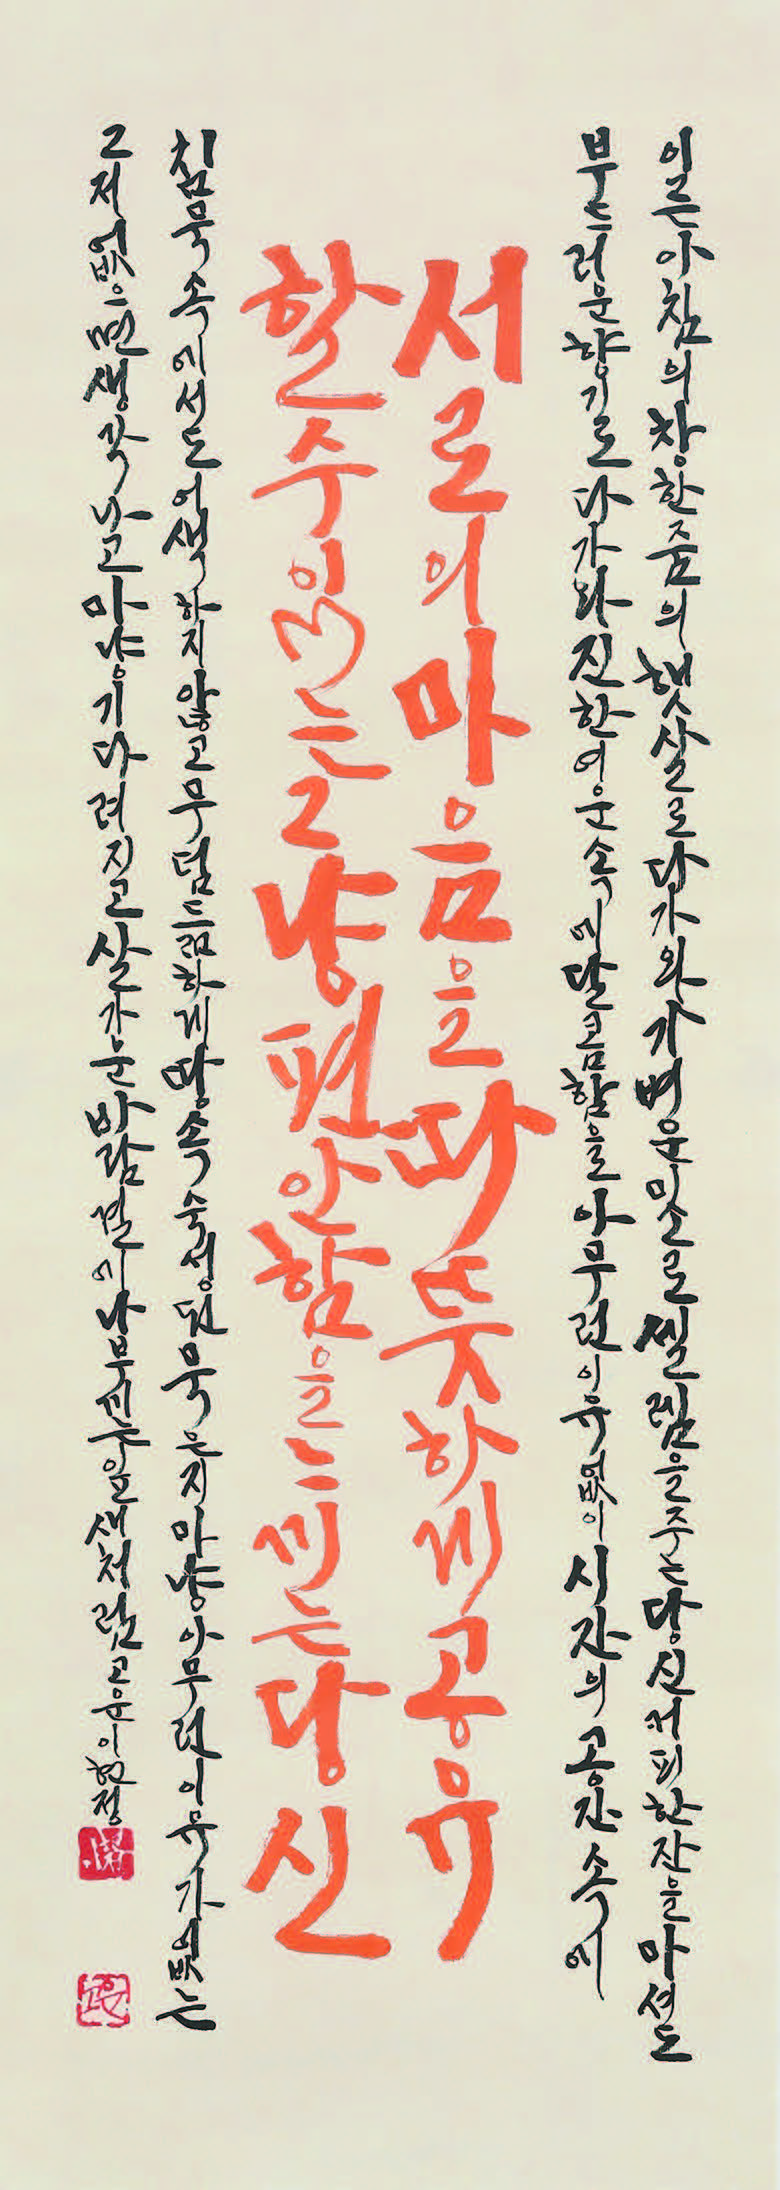 이른 아침의 창 한줌의 햇살로 다가와 가벼운 미소로 셀렘을 주는 당신 커피 한잔을 마셔도
부드러운 향기로 다가와 진한 여운 속에 달콤함을 아무런 이유 없이 시간의 공간 속에
서로의 마음을 따뜻하게 공유
할 수 있는 그냥 편안함을 느끼는 당신
침묵 속에서도 어색하지 않고 땅속 숙성된 묵은지 마냥 아무런 이유가 없는
그저 없으면 생각나고 마냥 기다려지고 살가운 바람결에 고운 이현정